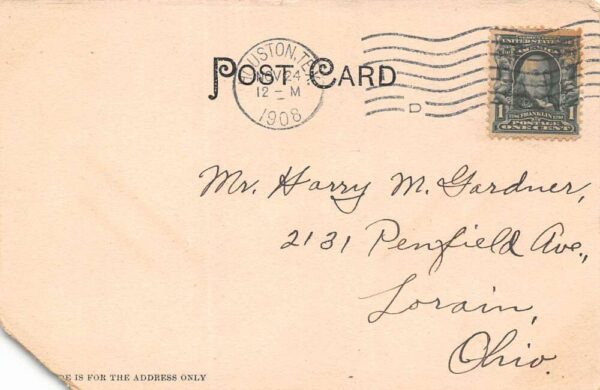 POST CARD
HOUSTON, TEX.
NOV 24
12 - M
1908
D
UNITED STATES OF AMERICA
1 FRANKLIN 1
POSTAGE
ONE CENT
Mr. Harry M. Gardner,
2131 Penfield Ave.,
Lorain,
Ohio.
DE IS FOR THE ADDRESS ONLY